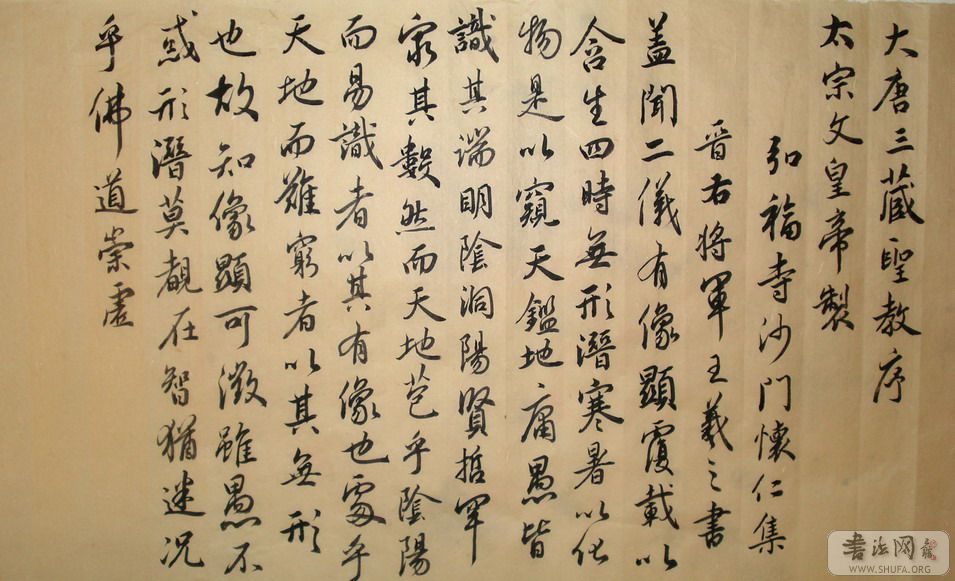 大唐三藏聖教序
太宗文皇帝製
弘福寺沙門懷仁集
晉右將軍王羲之書
蓋聞二儀有像顯覆載以
含生四時無形潛寒暑以化
物是以窺天鑑地庸愚皆
識其端明陰洞陽賢哲罕
窮其數然而天地苞乎陰陽
而易識者以其有像也處乎
天地而難窮者以其無形
也故知像顯可徵雖愚不
惑形潛莫覩在智猶迷况
乎佛道崇虛
書法网
WWW.SHUFA.ORG